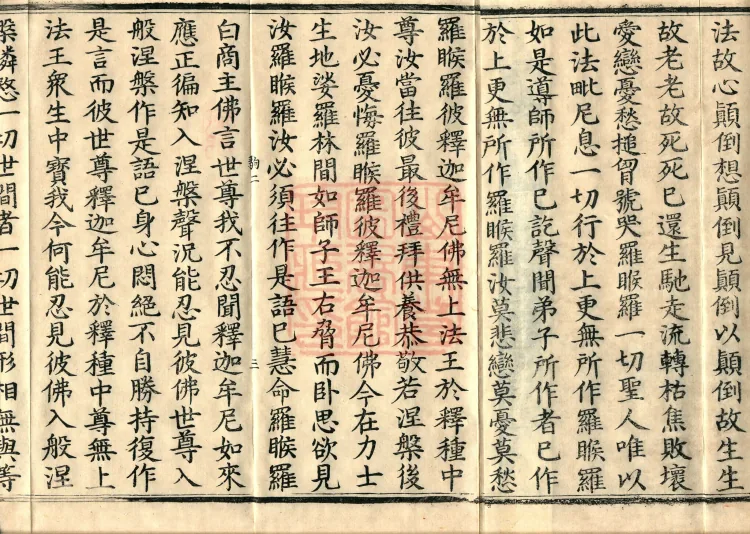 法故心顛倒想顛倒見顛倒以顛倒故生生
故老老故死死已還生馳走流轉枯焦敗壞
愛戀憂愁搥胷號哭羅睺羅一切聖人唯以
此法毗尼息一切行於上更無所作羅睺羅
如是導師所作已訖聲聞弟子所作者已作
於上更無所作羅睺羅汝莫悲戀莫憂莫愁
羅睺羅彼釋迦牟尼佛無上法王於釋種中
尊汝當往彼最後禮拜供養恭敬若涅槃後
汝必憂悔羅睺羅彼釋迦牟尼佛今在力士
生地娑羅林間如師子王右脅而卧思欲見
汝羅睺羅汝必須往作是語已慧命羅睺羅
白商主佛言世尊我不忍聞釋迦牟尼如來
應正徧知入涅槃聲況能忍見彼佛世尊入
般涅槃作是語已身心悶絕不自勝持復作
是言而彼世尊釋迦牟尼於釋種中尊無上
法王衆生中寶我今何能忍見彼佛入般涅
槃憐愍一切世間者一切世間形相無與等